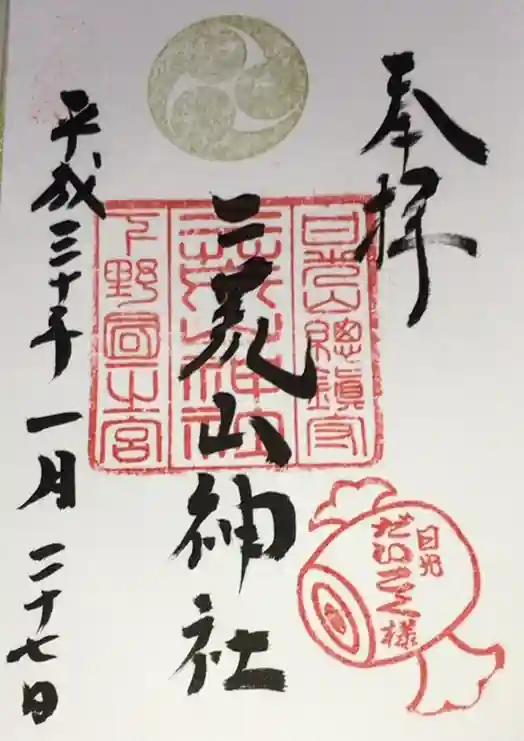 奉拝
日光山總鎮守
二荒山神社
二荒山神社
下野国一之宮
日光
だいこく様
平成三十年一月二十七日